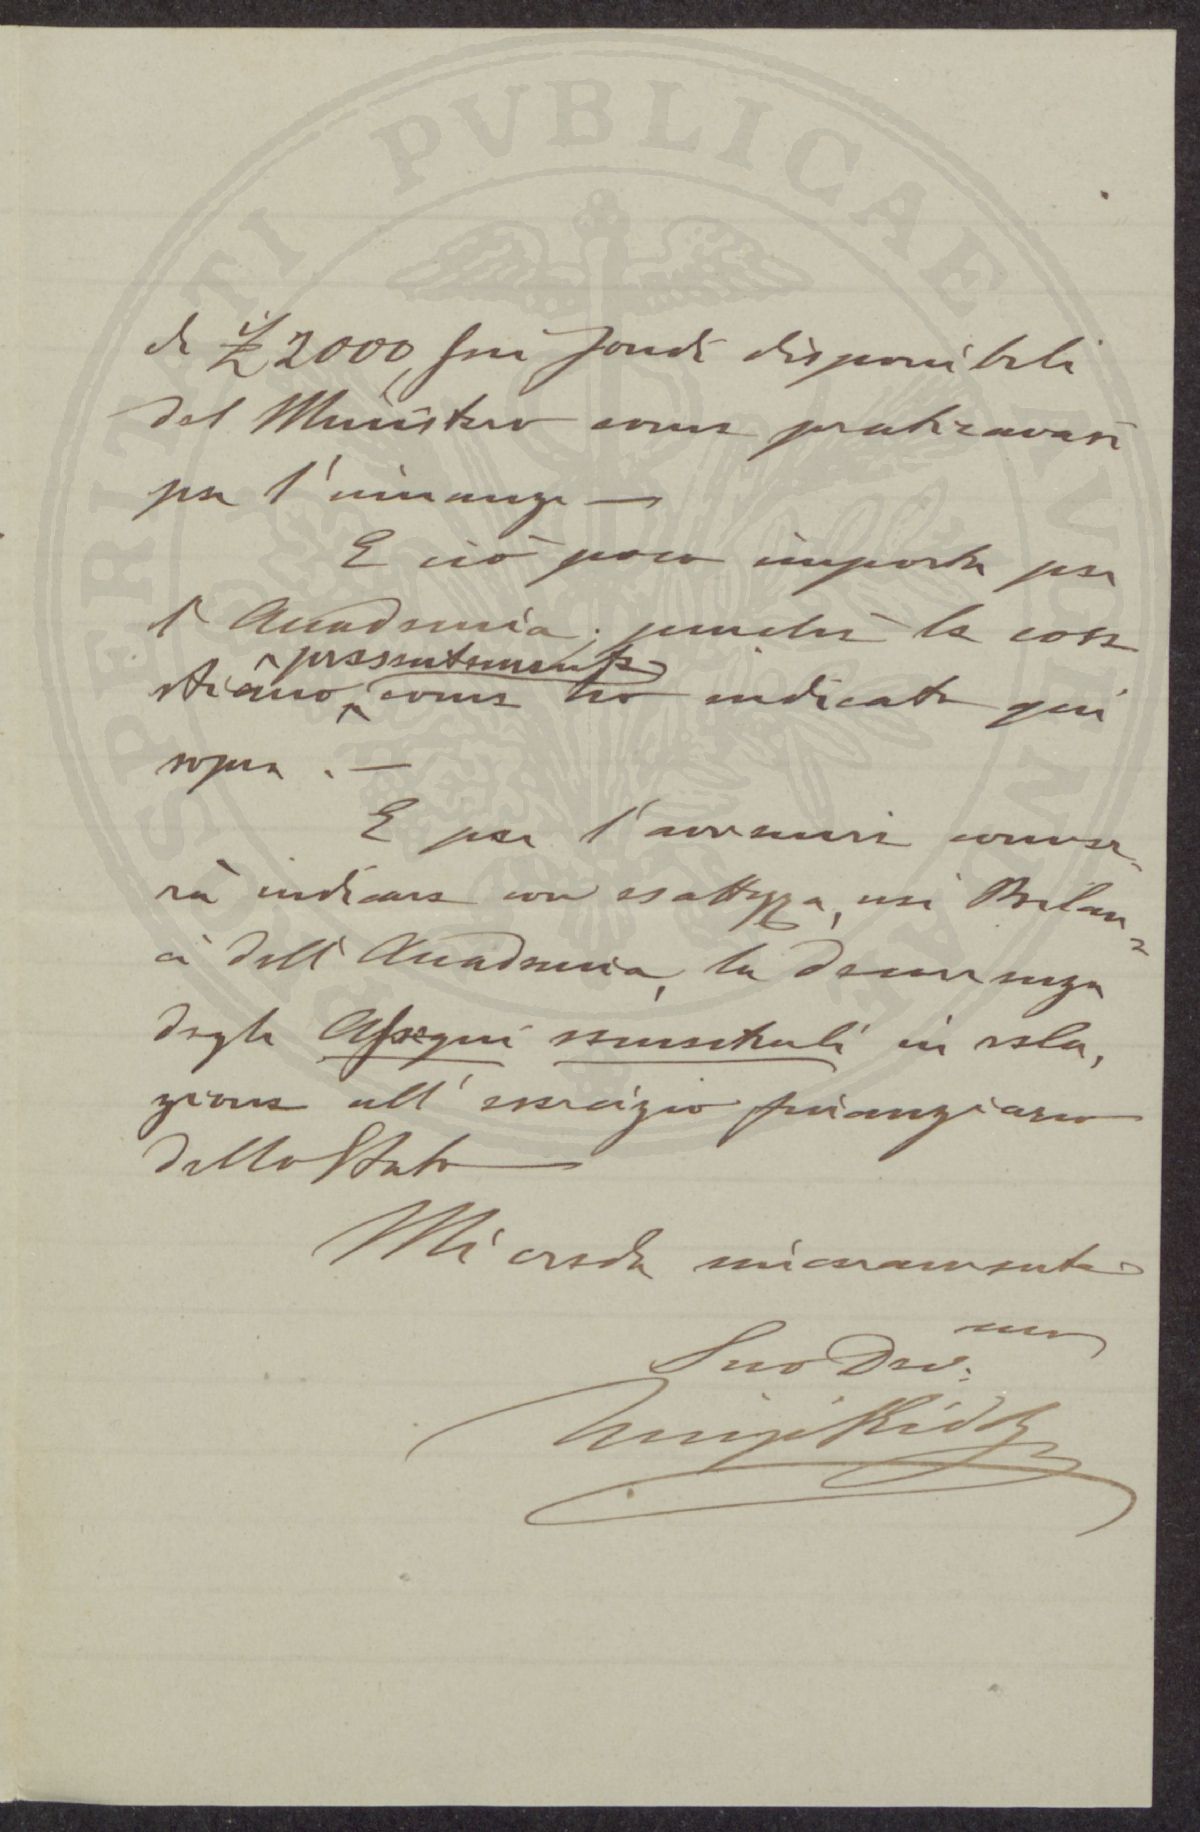 PROSPERITATI PVBLICAE AVGENDAE
di £ 2000, sui fondi disponibili
del Ministero come praticavasi
per l'innanzi —
E ciò poco importa per
l'Accademia; purchè le cose
presentemente
stiano, come ho indicato qui
sopra. —
E per l'avvenire conver-
rà indicare con esattezza, nei Bilan-
ci dell'Accademia, la decorrenza
degli Assegni semestrali in rela-
zione all'esercizio finanziario
dello Stato —
Mi creda sinceramente
Suo Dev.mo
Luigi Ridolfi